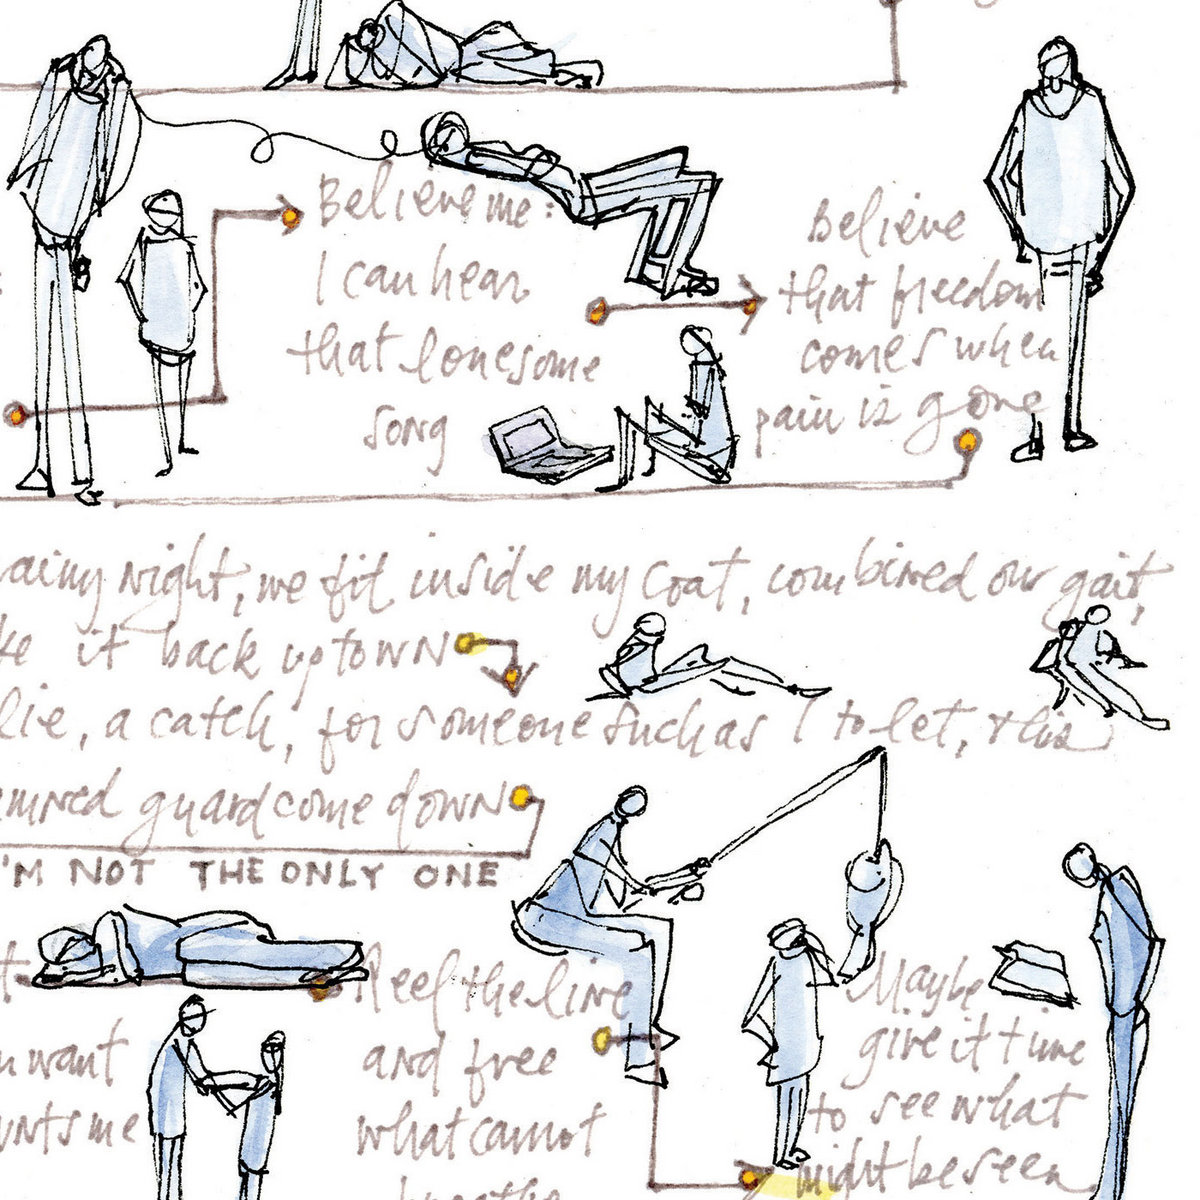 Believe me:
I can hear
that lonesome
song
Believe
that freedom
comes when
pain is gone
night, we fit inside my coat, combined our gait,
it back uptown
lie, a catch, for someone such as I to let, this
guard come down
I'M NOT THE ONLY ONE
Reel the line
and free
what cannot
breathe
want
me
Maybe
give it time
to see what
might be seen